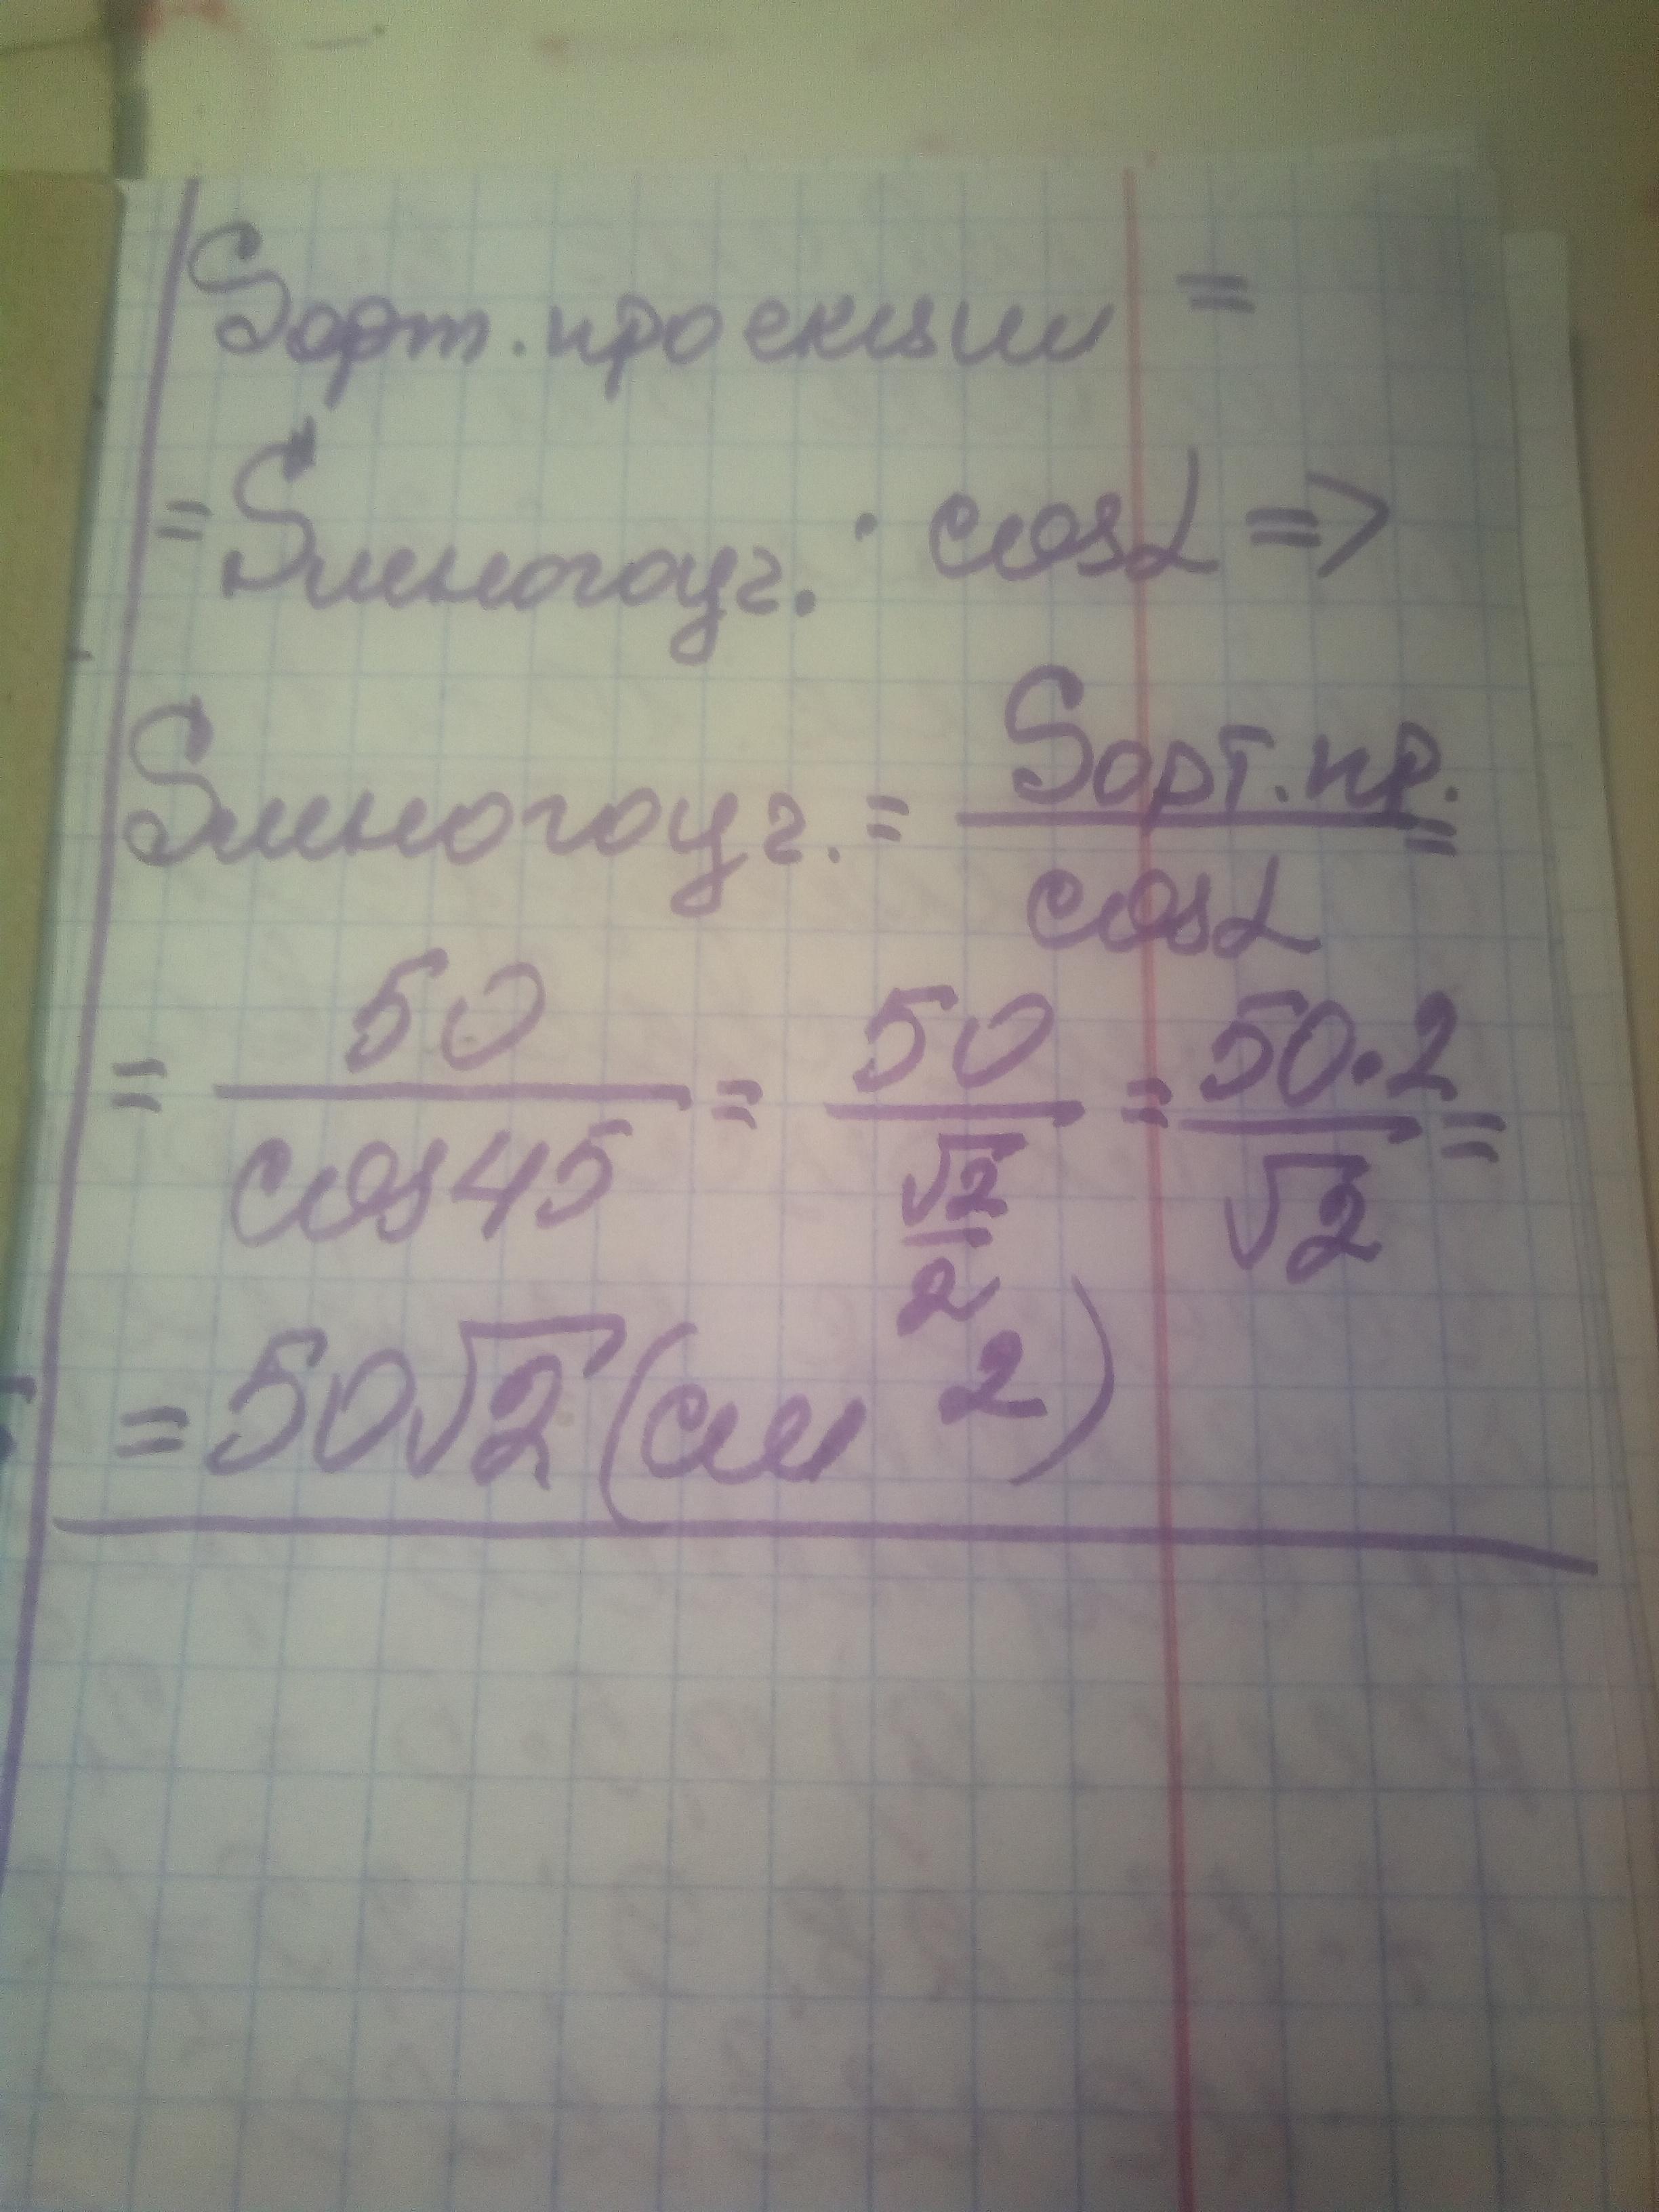 Sорт. проекции =
= Sмногоуг. · cosα =>
Sмногоуг. = Sорт.пр. / cosα =
= 50 / cos45 = 50 / (√2 / 2) = 50·2 / √2 =
= 50√2 (см²)